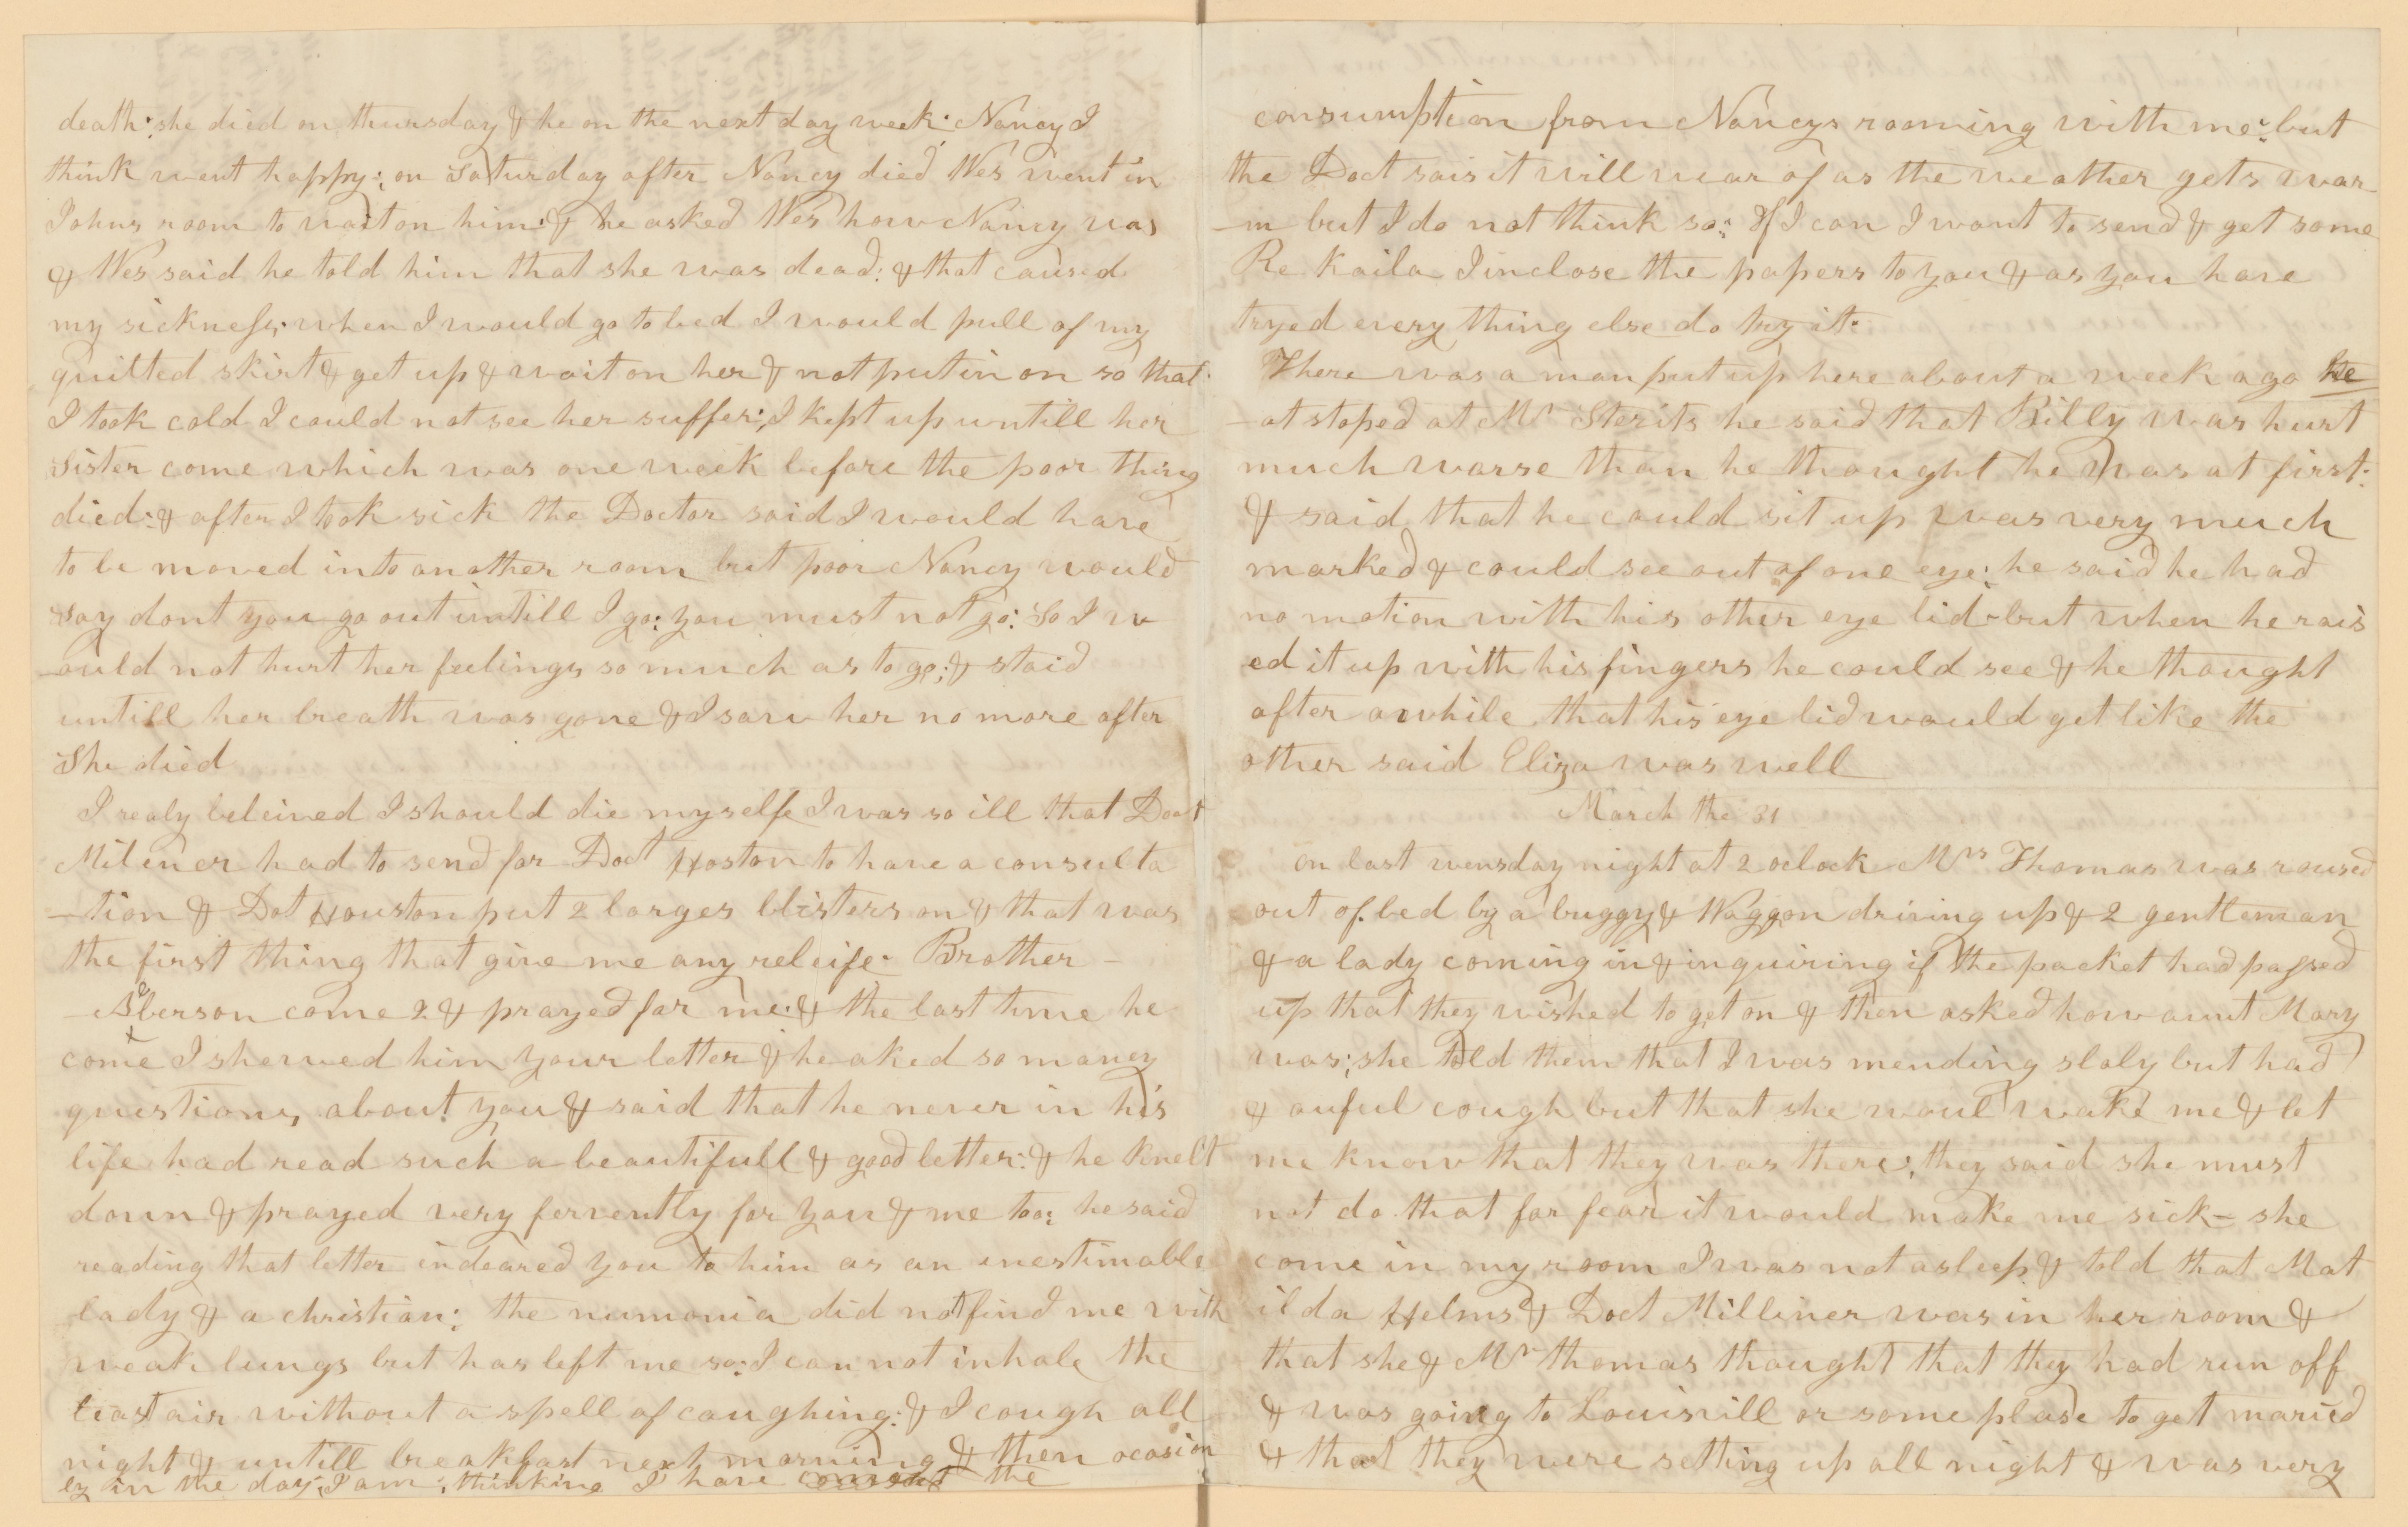 death: she died on thursday & he on the next day week: Nancy I
think went happy:, on Saturday after Nancy died Wes went in
Johns room to wait on him: & he asked Wes how Nancy was
& Wes said he told him that she was dead: & that caused
my sickness; when I would go to bed I would pull of my
quilted skirt & get up & wait on her & not put in on so that
I took cold I could not see her suffer; I kept up untill her
Sister come which was one week before the poor thing
died: & after I took sick the Doctor said I would have
to be moved into another room but poor Nancy would
say dont you go out untill I go: you must not go: So I w
-ould not hurt her feelings so much as to go; & staid
untill her breath was gone & I saw her no more after
She died
I realy beleived I should die myselfe I was so ill that Doct
Milener had to send for Doct Hoston to have a consulta
-tion & Dot Houston put 2 larges blisters on & that was
the first thing that give me any releife: Brother -
- berson come 2 & prayed for me: & the last time he
come I shewed him your letter & he aked so maney
questions, about you & said that he never in his
life had read such a beautifull & good letter: & he knelt
down & prayed very fervently for you & me too; he said
reading that letter indeared you to him as an inestimable
lady & a christian; the numonia did not find me with
weak lungs but has left me so: I can not inhale the
least air without a spell of coughing: & I cough all
night & untill breakfast next morning & then ocasion
ly in the day; I am ; thinking I have the
consumption from Nancys rooming with me: but
the Doct sais it will wear of as the weather gets war
-m but I do not think so; If I can I want to send & get some
Re Kaila I inclose the papers to you & as you have
tryed every thing else do try it:
There was a man put up here about a week ago he
-at stoped at Mr Sterits he said that Billy was hurt
much warse than he thought he was at first:
& said that he could sit up was very much
marked & could see out of one eye; he said he had
no motion with his other eye lid - but when he rais
ed it up with his fingers he could see & he thought
after awhile that his eye lid would get like the
other said Eliza was well
March the 31
on last wensday night at 2 oclock Mrs Thomas was roused
out of bed by a buggy & Waggon driving up & 2 gentleman
& a lady coming in & inquiring if the packet had passed
up that they wished to get on & then asked how aunt Mary
was; she told them that I was mending sloly but had
& auful cough but that she woul wake me & let
me know that they was there; they said she must
not do that for fear it would make me sick - she
come in my room I was not asleep & told that Mat
ilda Helms & Doct Milliner was in her room &
that she & Mr thomas thought that they had run off
& was going to Louisvill or some plase to get maried
& that they were setting up all night & was very